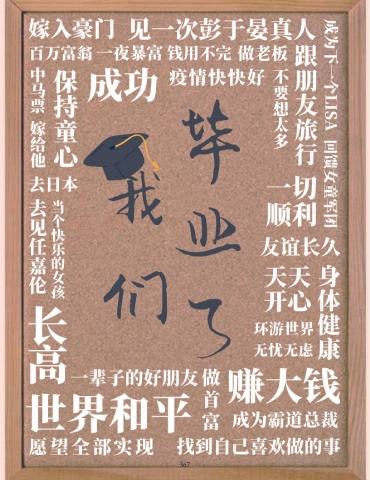 嫁入豪门 见一次彭于晏真人
百万富翁 一夜暴富 钱用不完 做老板
成为下一个LISA 回馈女童军团
跟朋友旅行
中马票
保持童心
成功
疫情快快好
不要想太多
嫁给他
去日本
去见任嘉伦
当个快乐的女孩
我们
毕业了
一切顺利
友谊长久
天天开心
身体健康
环游世界
无忧无虑
长高
一辈子的好朋友
做首富
赚大钱
世界和平
成为霸道总裁
愿望全部实现 找到自己喜欢做的事
367